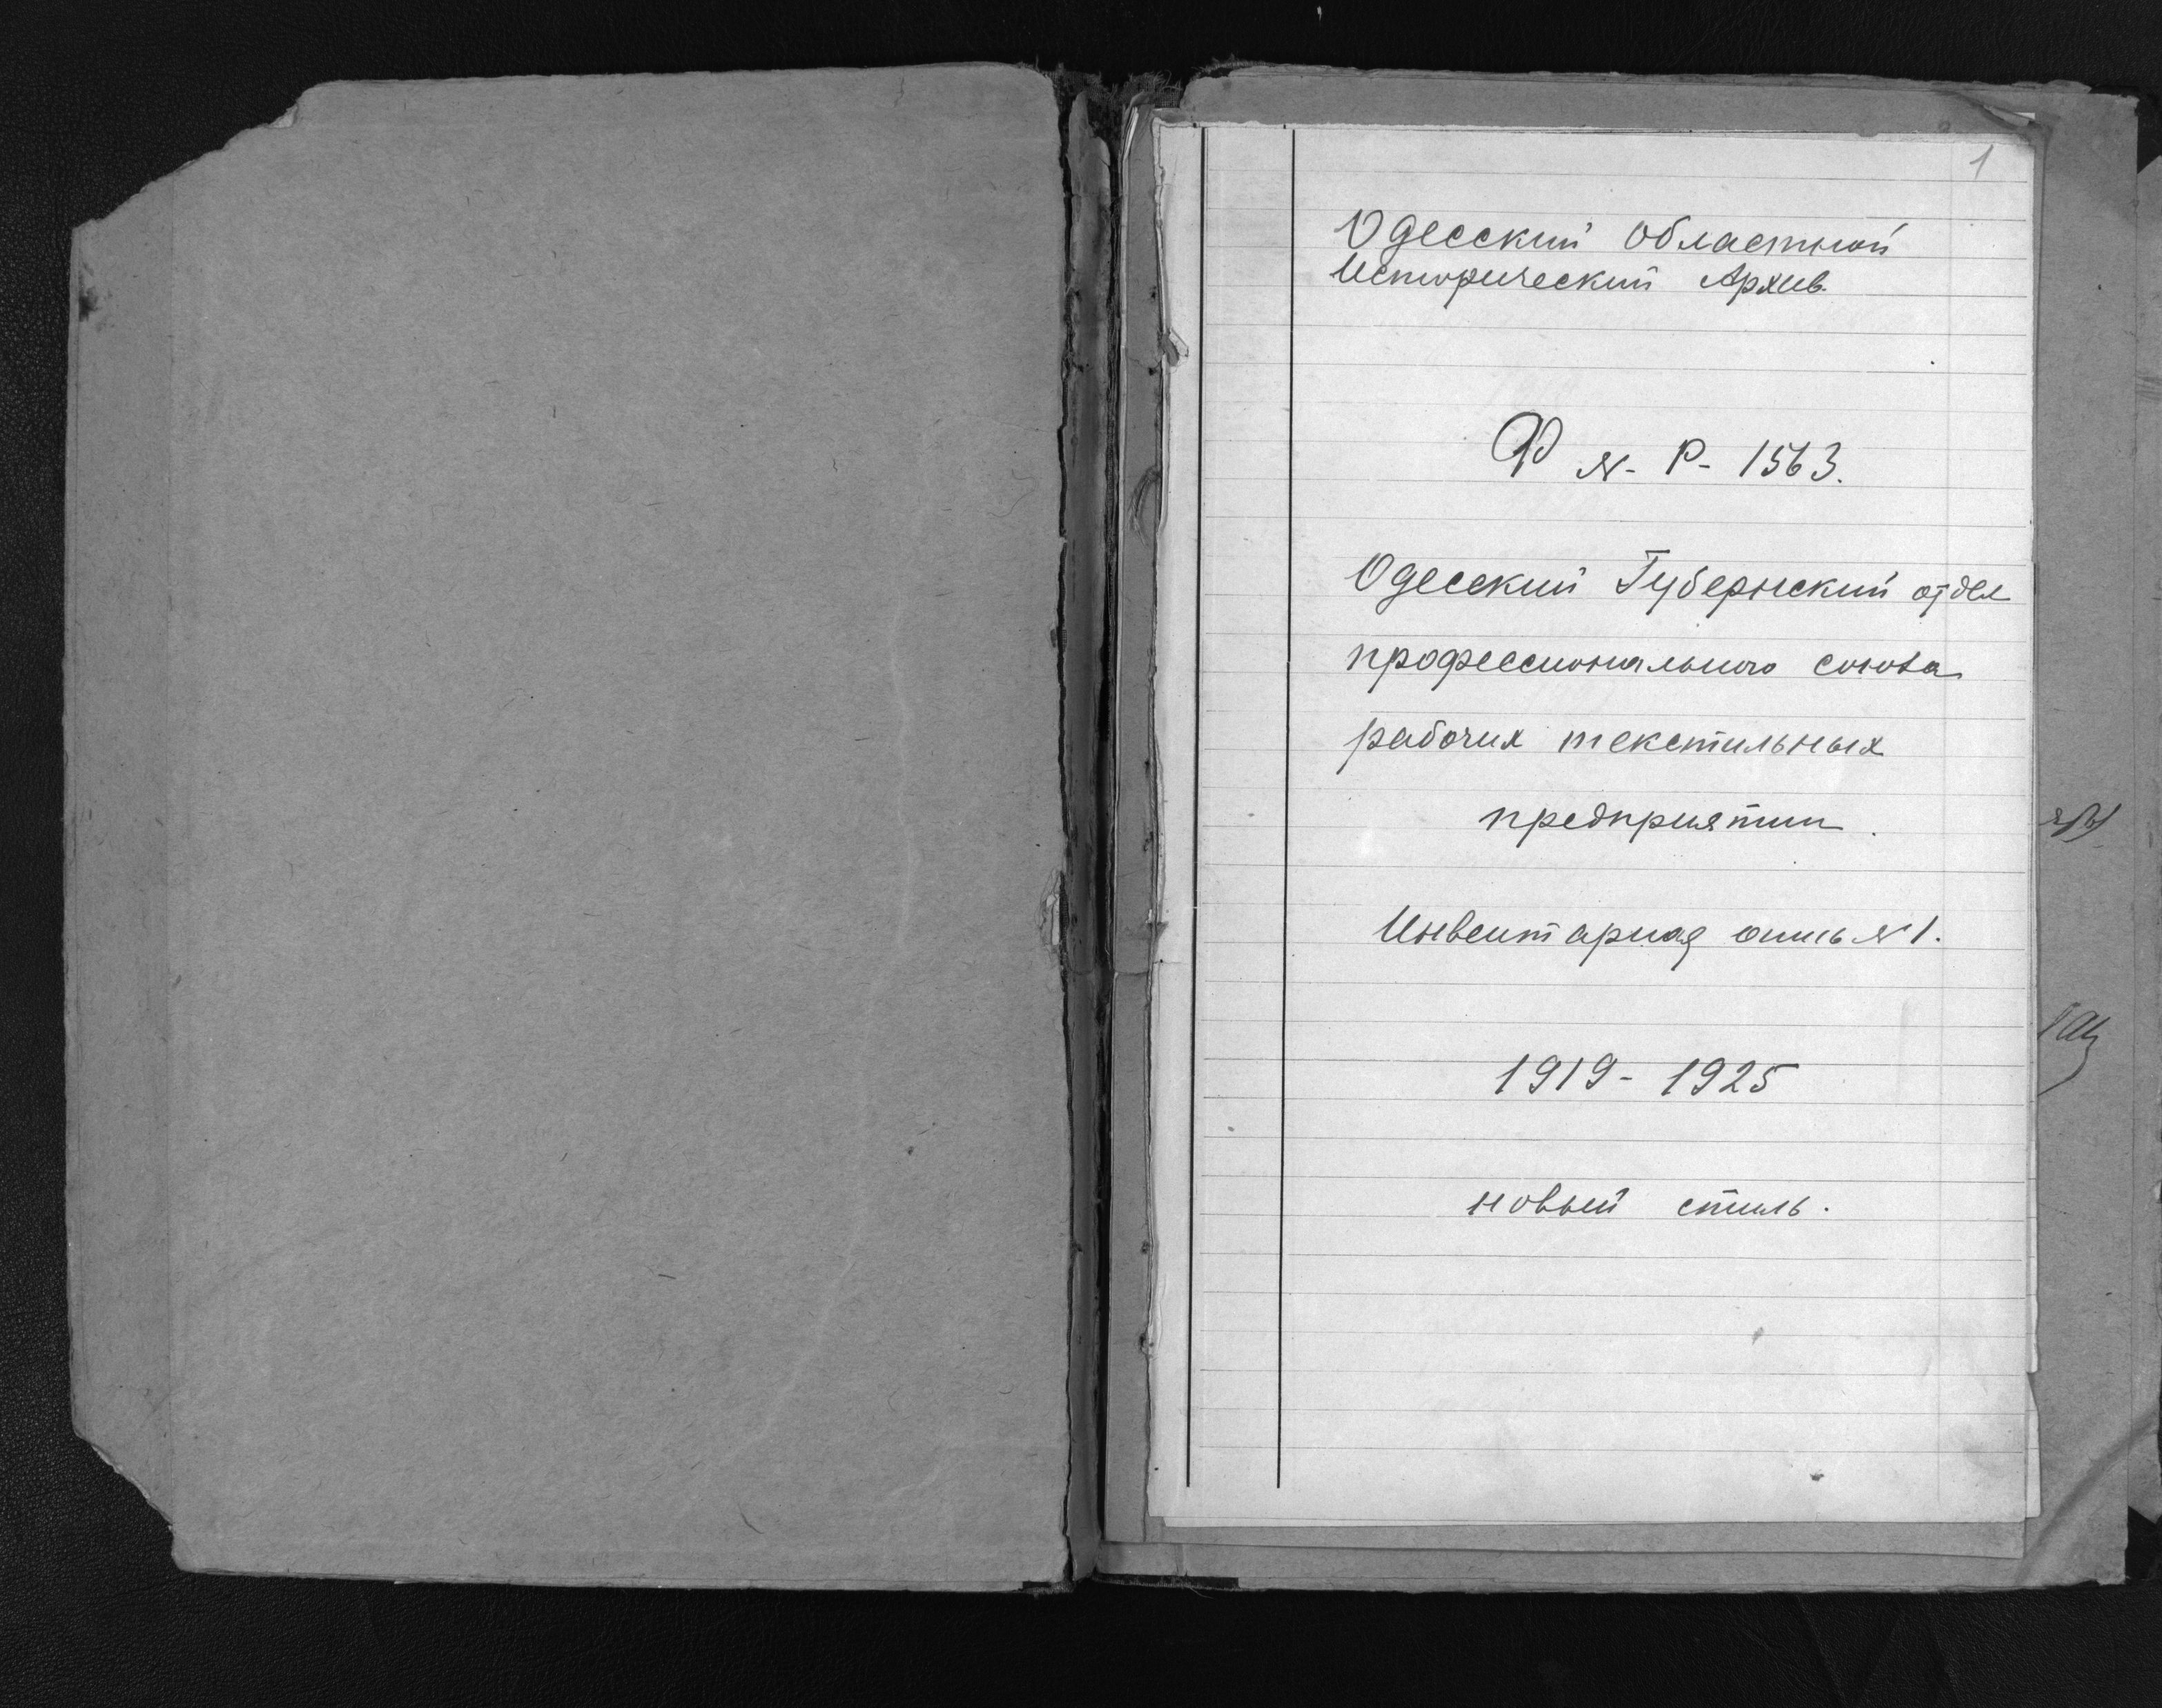 1
Одесский Областной
Исторический Архив.
Ф N- Р- 1563.
Одесский Губернский отдел
профессионального союза
рабочих текстильных
предприятии.
Инвентарная опись N 1.
1919 - 1925
новый стиль.